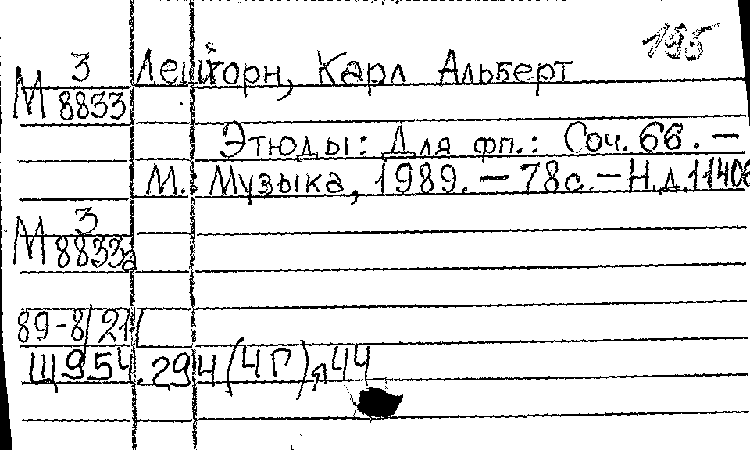 195
М 3/8833 Лешгорн, Карл Альберт
Этюды: Для фп.: Соч. 66. –
М.: Музыка, 1989. – 78с. – Н.д. 11406
М 3/8833а
89-8/21/
Щ954.294(4Г)я44